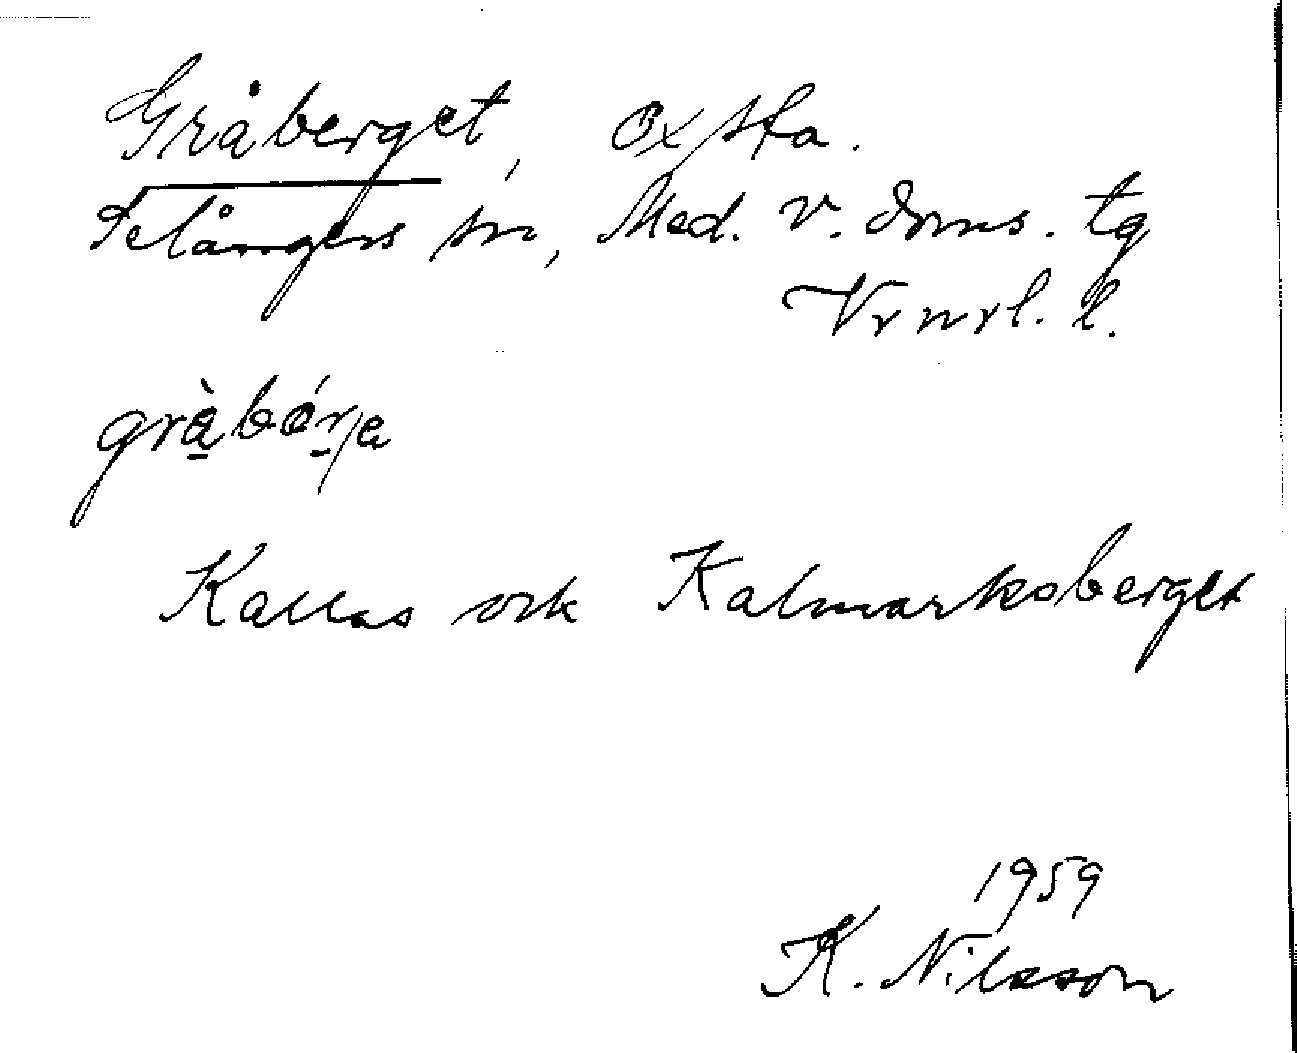 Gråberget, Oxsta.
Selångers sn, Med. v. doms. tg
Vrnrl. l.
gràbárje
Kallas ock Kalmarksberget
1959
K. Nilsson